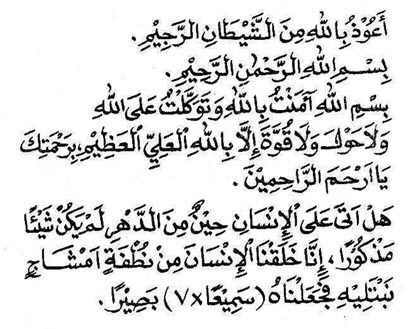 أَعُوْذُ بِاللهِ مِنَ الشَّيْطَانِ الرَّجِيْمِ.
بِسْمِ اللهِ الرَّحْمٰنِ الرَّحِيْمِ.
بِسْمِ اللهِ آمَنْتُ بِاللهِ وَتَوَكَّلْتُ عَلَى اللهِ
وَلَاحَوْلَ وَلَا قُوَّةَ إِلَّا بِاللهِ الْعَلِيِّ الْعَظِيْمِ، بِرَحْمَتِكَ
يَا اَرْحَمَ الرَّاحِمِيْنَ.
هَلْ اَتَى عَلَى الْإِنْسَانِ حِيْنٌ مِنَ الدَّهْرِ لَمْ يَكُنْ شَيْئًا
مَذْكُوْرًا، إِنَّا خَلَقْنَا الْإِنْسَانَ مِنْ نُطْفَةٍ اَمْشَاجٍ
نَبْتَلِيْهِ فَجَعَلْنَاهُ (سَمِيْعًا ×٧) بَصِيْرًا.